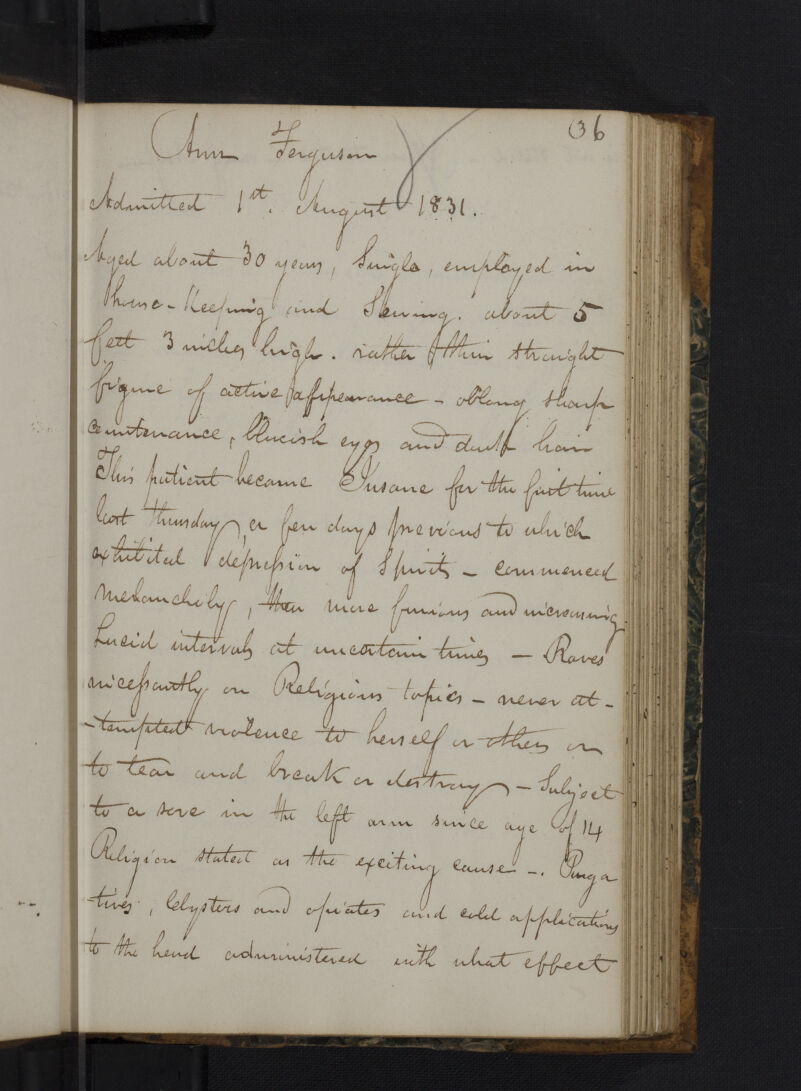 36
Ann Ferguson
Admitted 1st. August 1831.
Aged about 30 years, Single, employed in
house-Keeping and Sewing. about 5
feet 3 inches high. rather thin straight
figure of active appearance - oblong sharp
countenance, blueish eyes and dark hair
This patient became Insane for the first time
last thursday, a few days previous to which
exhibited depression of Spirits - commenced
melancholy, then more furious and increasing
Lucid intervals at uncertain times - Raves
incessantly on Religious topics - never at-
-tempted violence to herself or others or
to tear and break or destroy - Subject
to a sore in the left arm since age of 14
Religion stated as the exciting cause -. Purga
tives, Clysters and opiates and cold applications
to the head administered with what effect